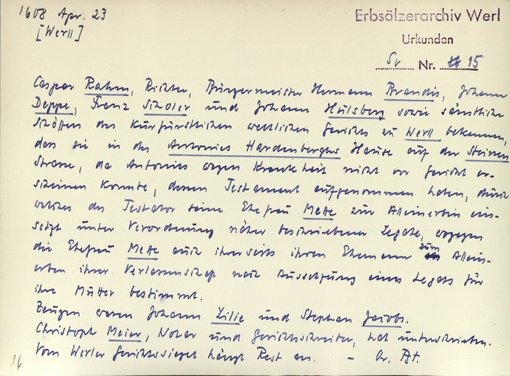 1608 Apr. 23
[Werl]
Erbsälzerarchiv Werl
Urkunden
Sv Nr. 15
Caspar Rahm, Richter, Bürgermeister Hermann Brandis, Johann
Deppe, Franz Schöler und Johann Hilsberg sowie sämtliche
Schöffen des Kurfürstlichen weltlichen Gerichts zu Werl bekennen,
dass sie in des Antonius Hardenbergus Hause auf der Steinen
Strasse, da Antonius wegen Krankheit nicht vor Gericht er-
scheinen konnte, dessen Testament aufgenommen haben, durch
welches der Testator seine Ehefrau Mette zur Alleinerbin ein-
setzt unter Verordnung näher beschriebener Legate, wogegen
die Ehefrau Mette auch ihrerseits ihren Ehemann zum Allein-
erben ihrer Verlassenschaft nach Aussetzung eines Legats für
ihre Mutter bestimmt.
Zeugen waren Johann Lilie und Stephan Jacobs.
Christoph Meier, Notar und Gerichtsschreiber, hat unterschrieben.
Vom Werler Gerichtssiegel hängt Rest an. - Or. Pgt.
16